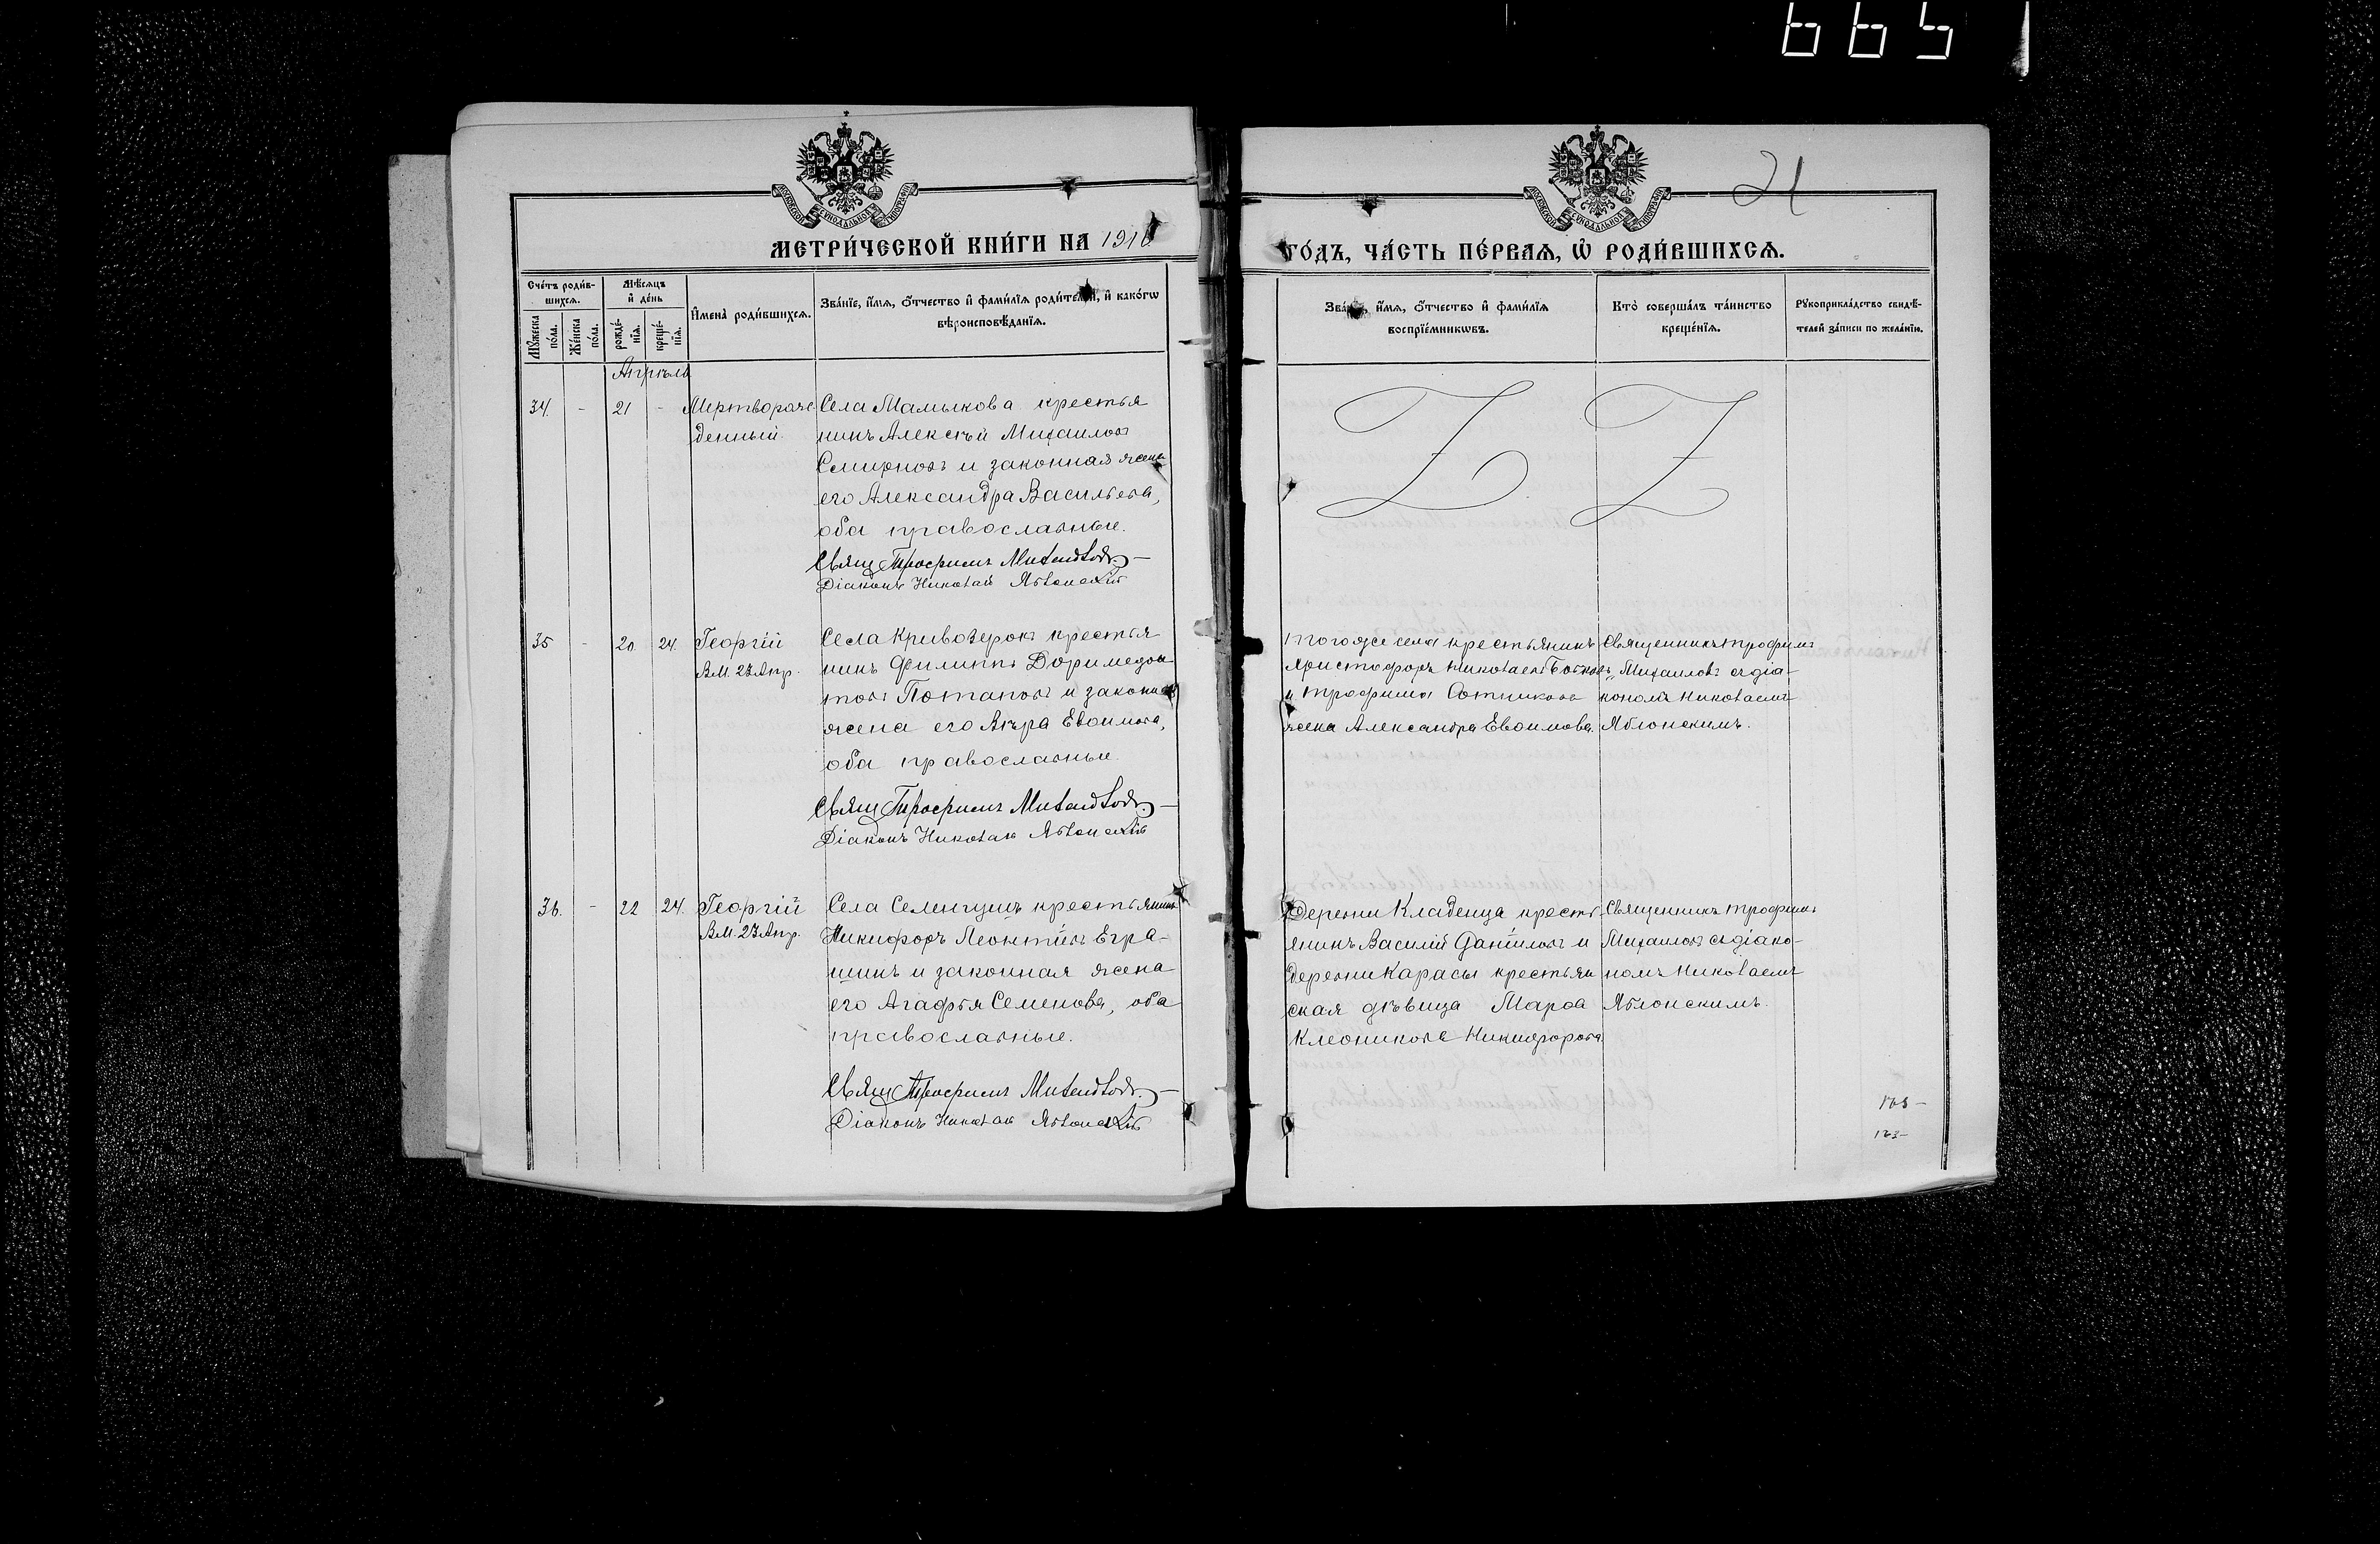 665
21
МЕТРИ́ЧЕСКОЙ КНИ́ГИ НА 1916
ГО́ДЪ, ЧА́СТЬ ПЕ́РВАЯ, Ѡ҆ РОДИ́ВШИХСЯ.
Сче́тъ роди́в-
шихся.
Мѣ́сяцъ
и҆ де́нь
Мꙋ́жеска
по́ла.
Же́нска
по́ла.
рожде́-
нїѧ.
креще́-
нїѧ.
И҆мена̀ роди́вшихсѧ.
Зва́нїе, и҆́мѧ, ѻ҆́тчество и҆ фами́лїѧ роди́телей, и҆ како́гѡ
вѣ́роисповѣ́данїѧ.
Зва́нїе, и҆́мѧ, ѻ҆́тчество и҆ фами́лїѧ
воспрїе́мникѡвъ.
Кто̀ соверша́лъ та́инство
креще́нїѧ.
Рꙋкоприкла́дство свидѣ́-
телей за́писи по жела́нїю.
Апрѣль
34. - 21 - Мертворож-
денный.
Села Мамыкова крестья
нинъ Алексѣй Михаиловъ
Смирновъ и законная жена
его Александра Васильева,
оба православные.
Свящ Трофимъ Михайловъ. –
Діаконъ Николай Яблонскій
35 - 20 24. Георгій
В.М. 23 Апр.
Села Кривозерокъ крестья
нинъ Филиппъ Доримедон
товъ Потаповъ и законная
жена его Вѣра Евѳимова,
оба православные
Свящ Трофимъ Михайловъ. –
Діаконъ Николай Яблонскій
того же села крестьянинъ
Христофоръ Николаевъ
и Трофима Сотникова
жена Александра Евѳимова.
Священникъ Трофимъ
Михаиловъ съ діа-
кономъ Николаемъ
Яблонскимъ.
36. - 22 24. Георгій
В.М. 23 Апр.
Села Селенгушъ крестьянинъ
Никифоръ Леонтіевъ Егра-
шинъ и законная жена
его Агафья Семенова, оба
православные.
Свящ Трофимъ Михайловъ. –
Діаконъ Николай Яблонскій
Деревни Кладенца кресть-
янинъ Василій Даніиловъ и
деревни Карасы крестьян
ская дѣвица Марѳа
Клеоникова Никифорова.
Священникъ Трофимъ
Михаиловъ съ діако-
номъ Николаемъ
Яблонскимъ.
123-